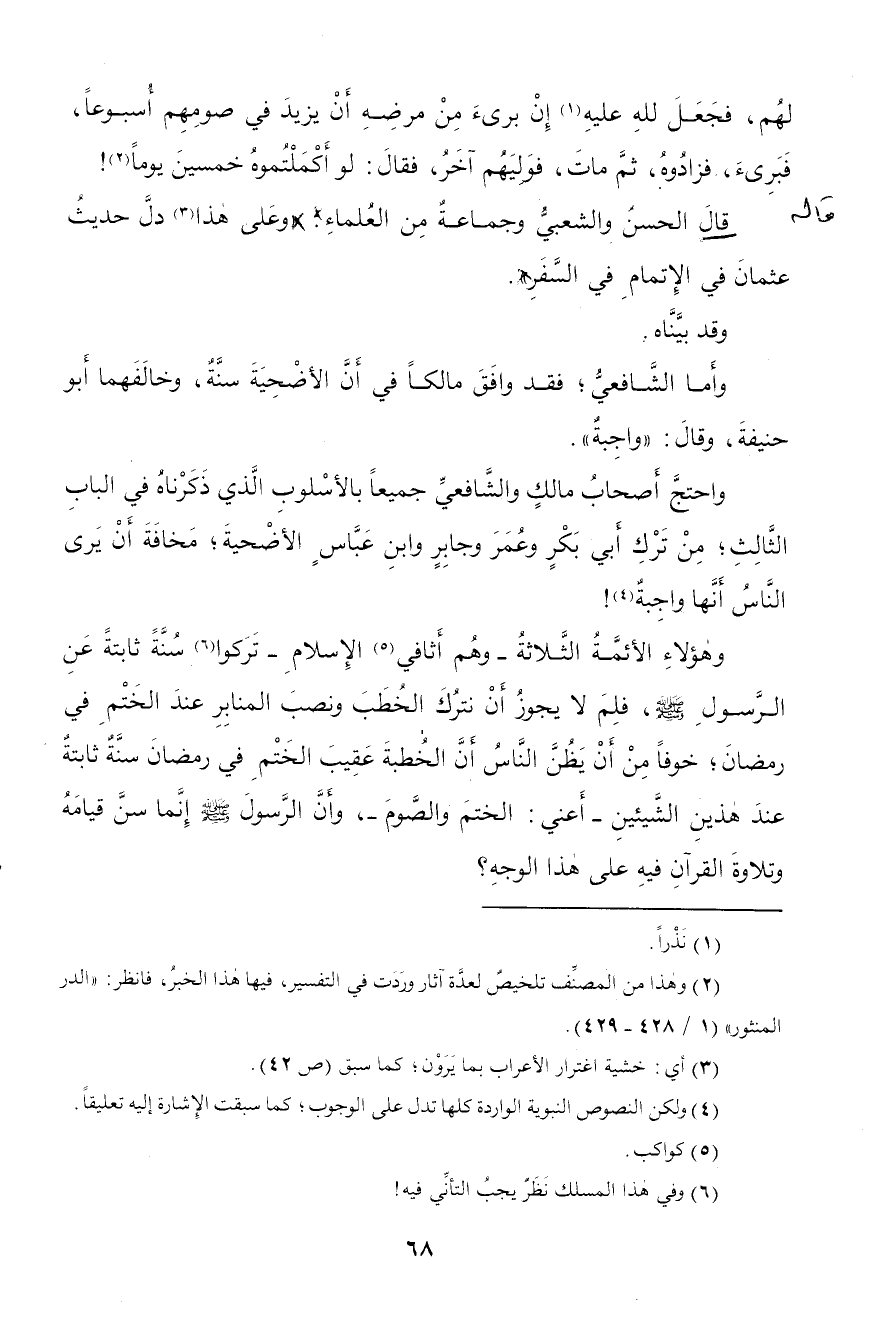 لهُم، فجَعَـلَ للهِ عليهِ(١) إِنْ برىءَ مِنْ مرضِـهِ أَنْ يزيدَ في صومِهِم أُسبـوعاً،
فَبَرِىءَ، فزادُوهُ، ثمَّ ماتَ، فوَلِيَهُم آخَرُ، فقالَ: لو أَكْمَلْتُموهُ خمسينَ يوماً(٢)!
قالَ الحسنُ والشعبيُّ وجمـاعـةٌ مِن العُلماءِ: وعَلى هٰذا(٣) دلَّ حديثُ
عثمانَ في الإِتمامِ في السَّفَرِ.
وقد بيَّنَّاه.
وأَمـا الشَّـافعيُّ؛ فقـد وافَقَ مالكـاً في أَنَّ الأضْحِيَةَ سنَّةٌ، وخالَفَهما أَبو
حنيفةَ، وقالَ: «واجبةٌ».
واحتجَّ أَصحابُ مالكٍ والشَّافعيِّ جميعاً بالأسْلوبِ الَّذي ذَكَرْناهُ في البابِ
الثَّالِثِ؛ مِنْ تَرْكِ أَبي بَكْرٍ وعُمَرَ وجابِرٍ وابنِ عَبَّاسٍ الأضْحيةَ؛ مَخافَةَ أَنْ يَرى
النَّاسُ أَنَّها واجِبةٌ(٤)!
وهٰؤلاءِ الأئمَّـةُ الثَّـلاثةُ ـ وهُم أَثافي(٥) الإِسلامِ ـ تَرَكوا(٦) سُنَّةً ثابتةً عَنِ
الـرَّسـولِ ﷺ، فلِمَ لا يجوزُ أَنْ نتركَ الخُطَبَ ونصبَ المنابِرِ عندَ الخَتْمِ في
رمضانَ؛ خوفاً مِنْ أَنْ يَظُنَّ النَّاسُ أَنَّ الخُطبةَ عَقِيبَ الخَتْمِ في رمضانَ سنَّةٌ ثابتةٌ
عندَ هٰذينِ الشَّيئينِ ـ أَعني: الختمَ والصَّومَ ـ، وأَنَّ الرَّسولَ ﷺ إِنَّما سنَّ قيامَهُ
وتلاوةَ القرآنِ فيهِ على هٰذا الوجهِ؟
(١) نَذْراً.
(٢) وهٰذا من المصنِّف تلخيصٌ لعدَّة آثار ورَدَت في التفسير، فيها هٰذا الخبرُ، فانظر: «الدر
المنثور» (١ / ٤٢٨ ـ ٤٢٩).
(٣) أي: خشية اغترار الأعراب بما يَرَوْن؛ كما سبق (ص ٤٢).
(٤) ولكن النصوص النبوية الواردة كلها تدل على الوجوب؛ كما سبقت الإِشارة إليه تعليقاً.
(٥) كواكب.
(٦) وفي هٰذا المسلك نَظَرٌ يجبُ التأنِّي فيه!
٦٨